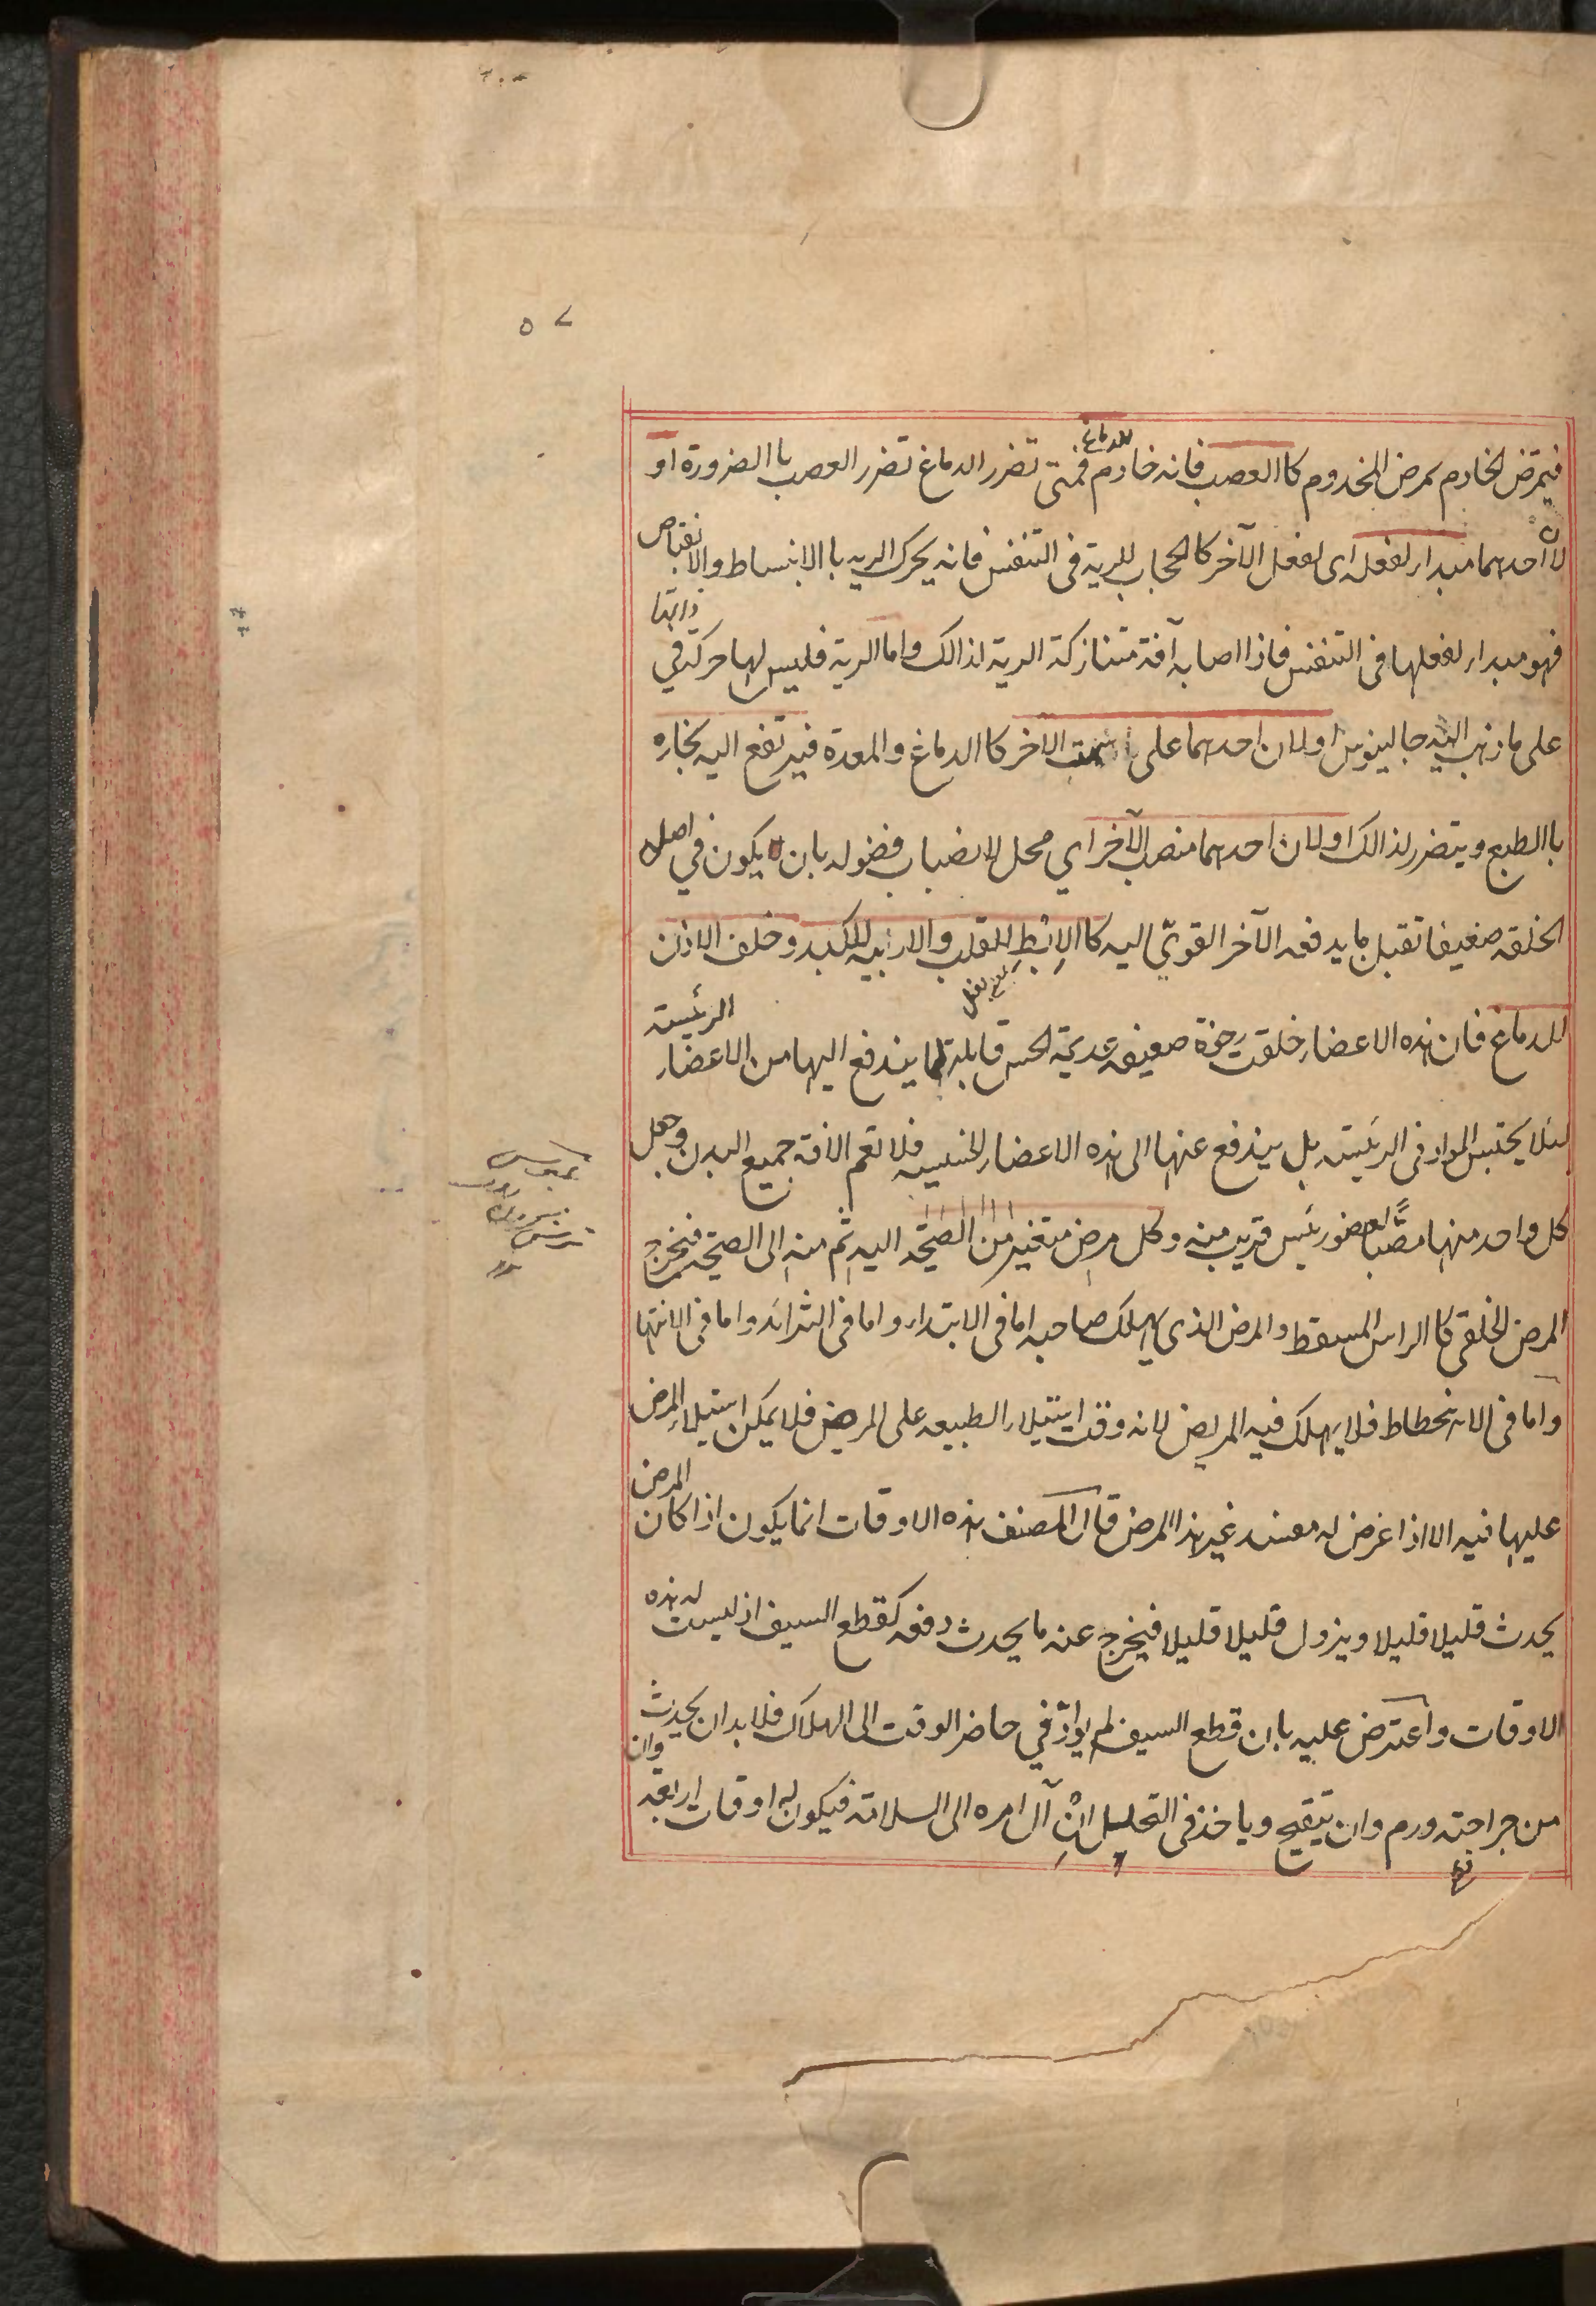 ٥٧
فيمرض الخادم بمرض المخدوم كا العصب فانه خادم للدماغ فمتى تضرر الدماغ تضرر العصب با الضرورة او
لان احدهما مبدا ر لفعله اى لفعل الآخر كا لحجاب للرية فى التنفس فانه يحرك الريه با الانبساط والانقباض
فهو مبدا ر لفعلها فى التنفس فاذا اصابه آفة متنازكة الرية لذالك واما الرية فليس لها حركة في ذاتها
على ما ذهب اليه جالينوس او لان احدهما على سمت الآخر كا الدماغ والمعدة فيرتفع اليه بخاره
با الطبع ويتضرر لذالك او لان احدهما منصب الآخر اي محل لانصباب فضوله بان يكون في اصل
الخلقه ضعيفا تقبل ما يدفعه الآخر القوىّ اليه كا الاِبْطِ للقلب والاربيه للكبد وخلف الاذن
للدماغ فان هذه الاعضاء خلقت رخوة ضعيفه عديمة الحس قابلة لما يندفع اليها من الاعضاء الرئيسة
لئلا يحتبس المواد فى الرئيسته بل يندفع عنها الى هذه الاعضاء الخسيسه فلا تعم الافة جميع البدن وجعل
كل واحد منها مصَّبًا لعضو رئيس قريب منه وكل مرض متغير من الصحّة اليه ثم منه الى الصحّة فيخرج
المرض الخلقى كا الراس المسقط والمرض الذي يهلك صاحبه اما فى الابتداء واما فى التزائد واما فى الانتها
واما فى الانحطاط فلا يهلك فيه المريض لانه وقت استيلاء الطبيعه على المرض فلا يمكن استيلاء المرض
عليها فيه الا اذا عرض له مفسد غير هذا المرض قال المصنف هذه الاوقات انما يكون اذا كان المرض
يحدث قليلا قليلا ويزول قليلا قليلا فيخرج عنه ما يحدث دفعه كقطع السيف اذ ليست له هذه
الاوقات واعترض عليه بان قطع السيف لم يوادّ في حاضر الوقت الى الهلاك فلا بد ان يحدث
من جراحته ورم وان يتقيح وياخذ فى التحليل انْ آل امره الى السلامة فيكون له اوقات اربعه وان